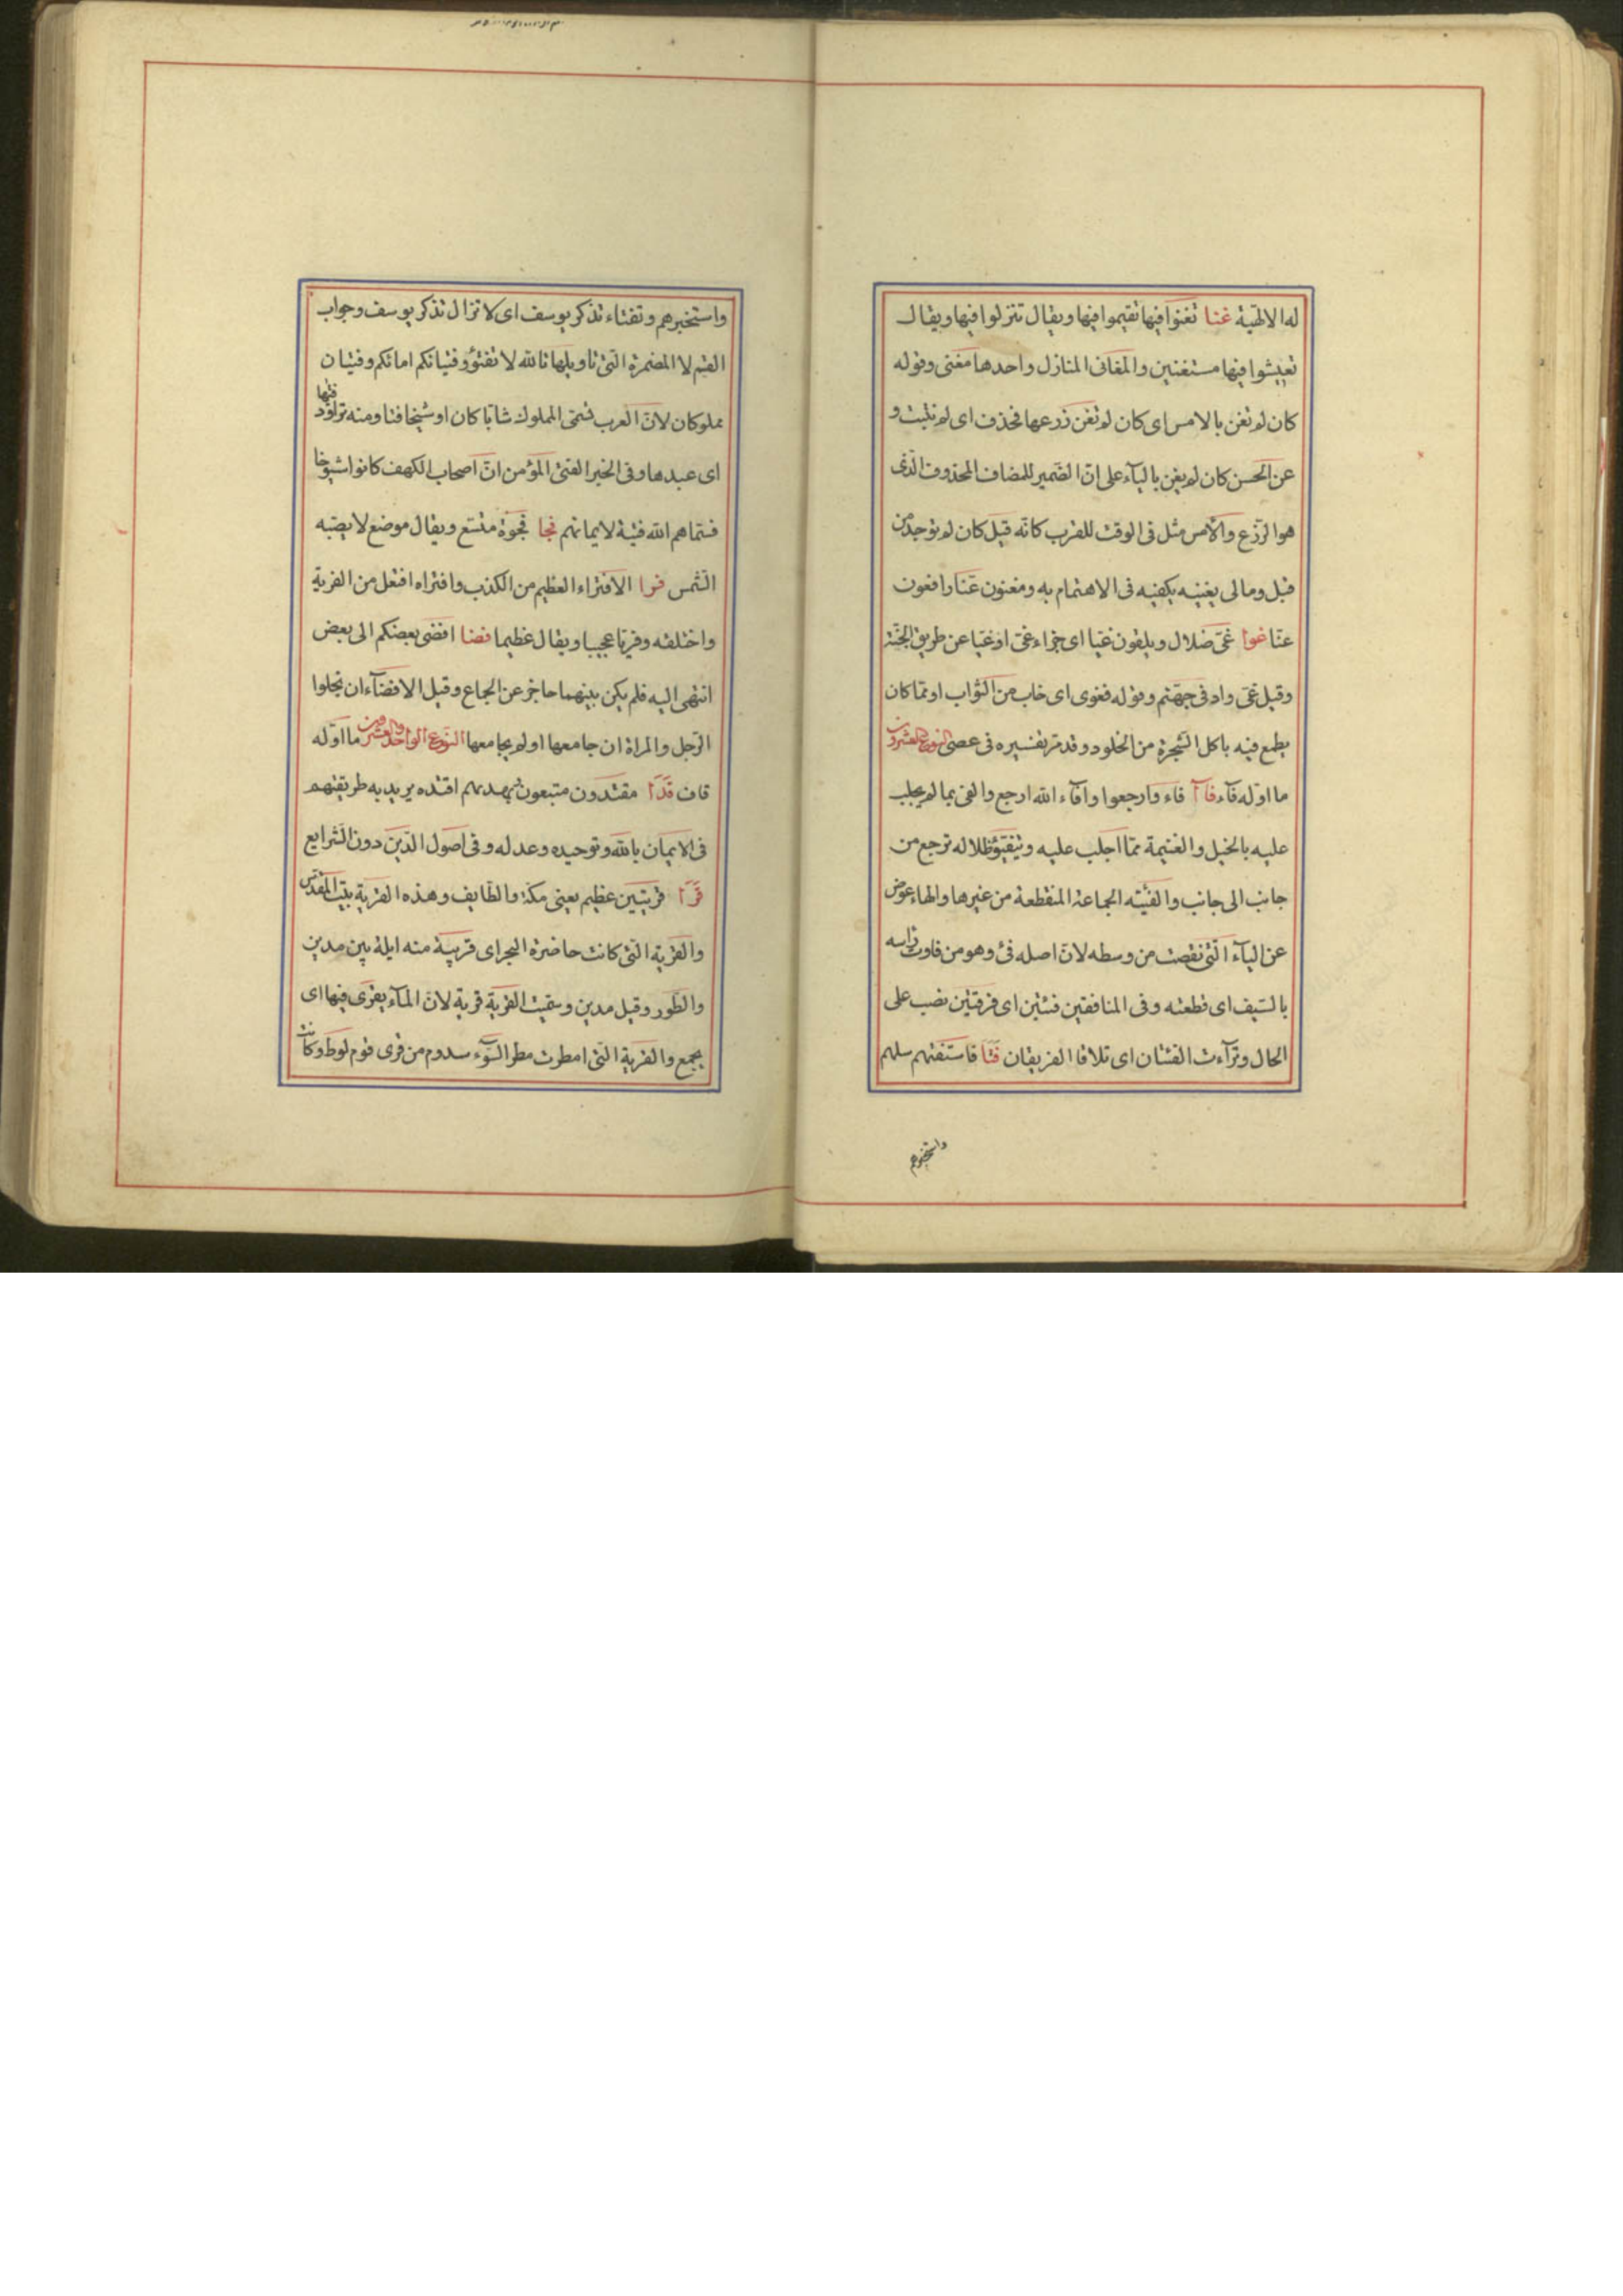 له الالهية غنا تغنوا فيها تقيموا فيها ويقال تنزلوا فيها ويقال
تعيشوا فيها مستغنين والمغانى المنازل واحدها مغنى وقوله
كان لم تغن بالامس اى كان لم تغن زرعها فحذف اى لم تثبت و
عن الحسن كان لم يغن بالياء على ان الضمير للمضاف المحذوف الذى
هو الزرع والامس مثل فى الوقت للقرب كانه قيل كان لم توجد من
قبل ومالى يغنيه يكفيه فى الاهتمام به ومغنون عنا دافعون
عنا غوا غى ضلال ويلقون غيا اى جزاء غى او غيا عن طريق الجنة
وقيل غى واد فى جهنم وقوله فغوى اى خاب من الثواب او مما كان
يطمع فيه باكل الشجرة من الخلود وقد مر تفسيره فى عصى النوع العشرون
ما اوله فاء فاآ فاء وارجعوا وافاء الله ارجع والفى بما لم يجلب
عليه بالخيل والغنيمة مما اجلب عليه وتتفيؤ ظلاله ترجع من
جانب الى جانب والفئته الجماعة المنقطعة من غيرها والهاء عوض
عن الياء التى نقصت من وسطه لان اصله فئ وهو من فاوت راسه
بالسيف اى قطعته وفى المنافقين فئتين اى فرقتين نصب على
الحال وتراءت الفئتان اى تلاقا الفريقان فتا فاستفتهم سلهم
واستخبرهم
واستخبرهم وتفتاء تذكر يوسف اى لا تزال تذكر يوسف وجواب
القسم لا المضمرة التى تاويلها تالله لا تفتؤ وفتياتكم امائكم وفتيان
مملوكان لان العرب تسمى المملوك شابا كان او شيخا فتا ومنه تراود فتيها
اى عبدها وفى الخبر الفتى المؤمن ان اصحاب الكهف كانوا شيوخا
فسماهم الله فتية لايمانهم فجا فجوة متسع ويقال موضع لا يصيبه
الشمس فرا الافتراء العظيم من الكذب وافتراه افتعل من الفرية
واختلقه وفريا عجيبا ويقال عظيما فضا افضى بعضكم الى بعض
انتهى اليه فلم يكن بينهما حاجز عن الجماع وقيل الافضاء ان يخلوا
الرجل والمراة ان جامعها او لم يجامعها النوع الواحد والعشرون ما اوله
قاف قدا مقتدون متبعون فبهديهم اقتده يريد به طريقتهم
فى الايمان بالله وتوحيده وعدله وفى اصول الدين دون الشرايع
قرا قريتين عظيم يعنى مكة والطايف وهذه القرية بيت المقدس
والقرية التى كانت حاضرة البحر اى قريبة منه ايلة بين مدين
والطور وقيل مدين وسميت القرية قرية لان الماء يقرى فيها اى
يجمع والقرية التى امطرت مطر السوء سدوم من قرى قوم لوط وكانت